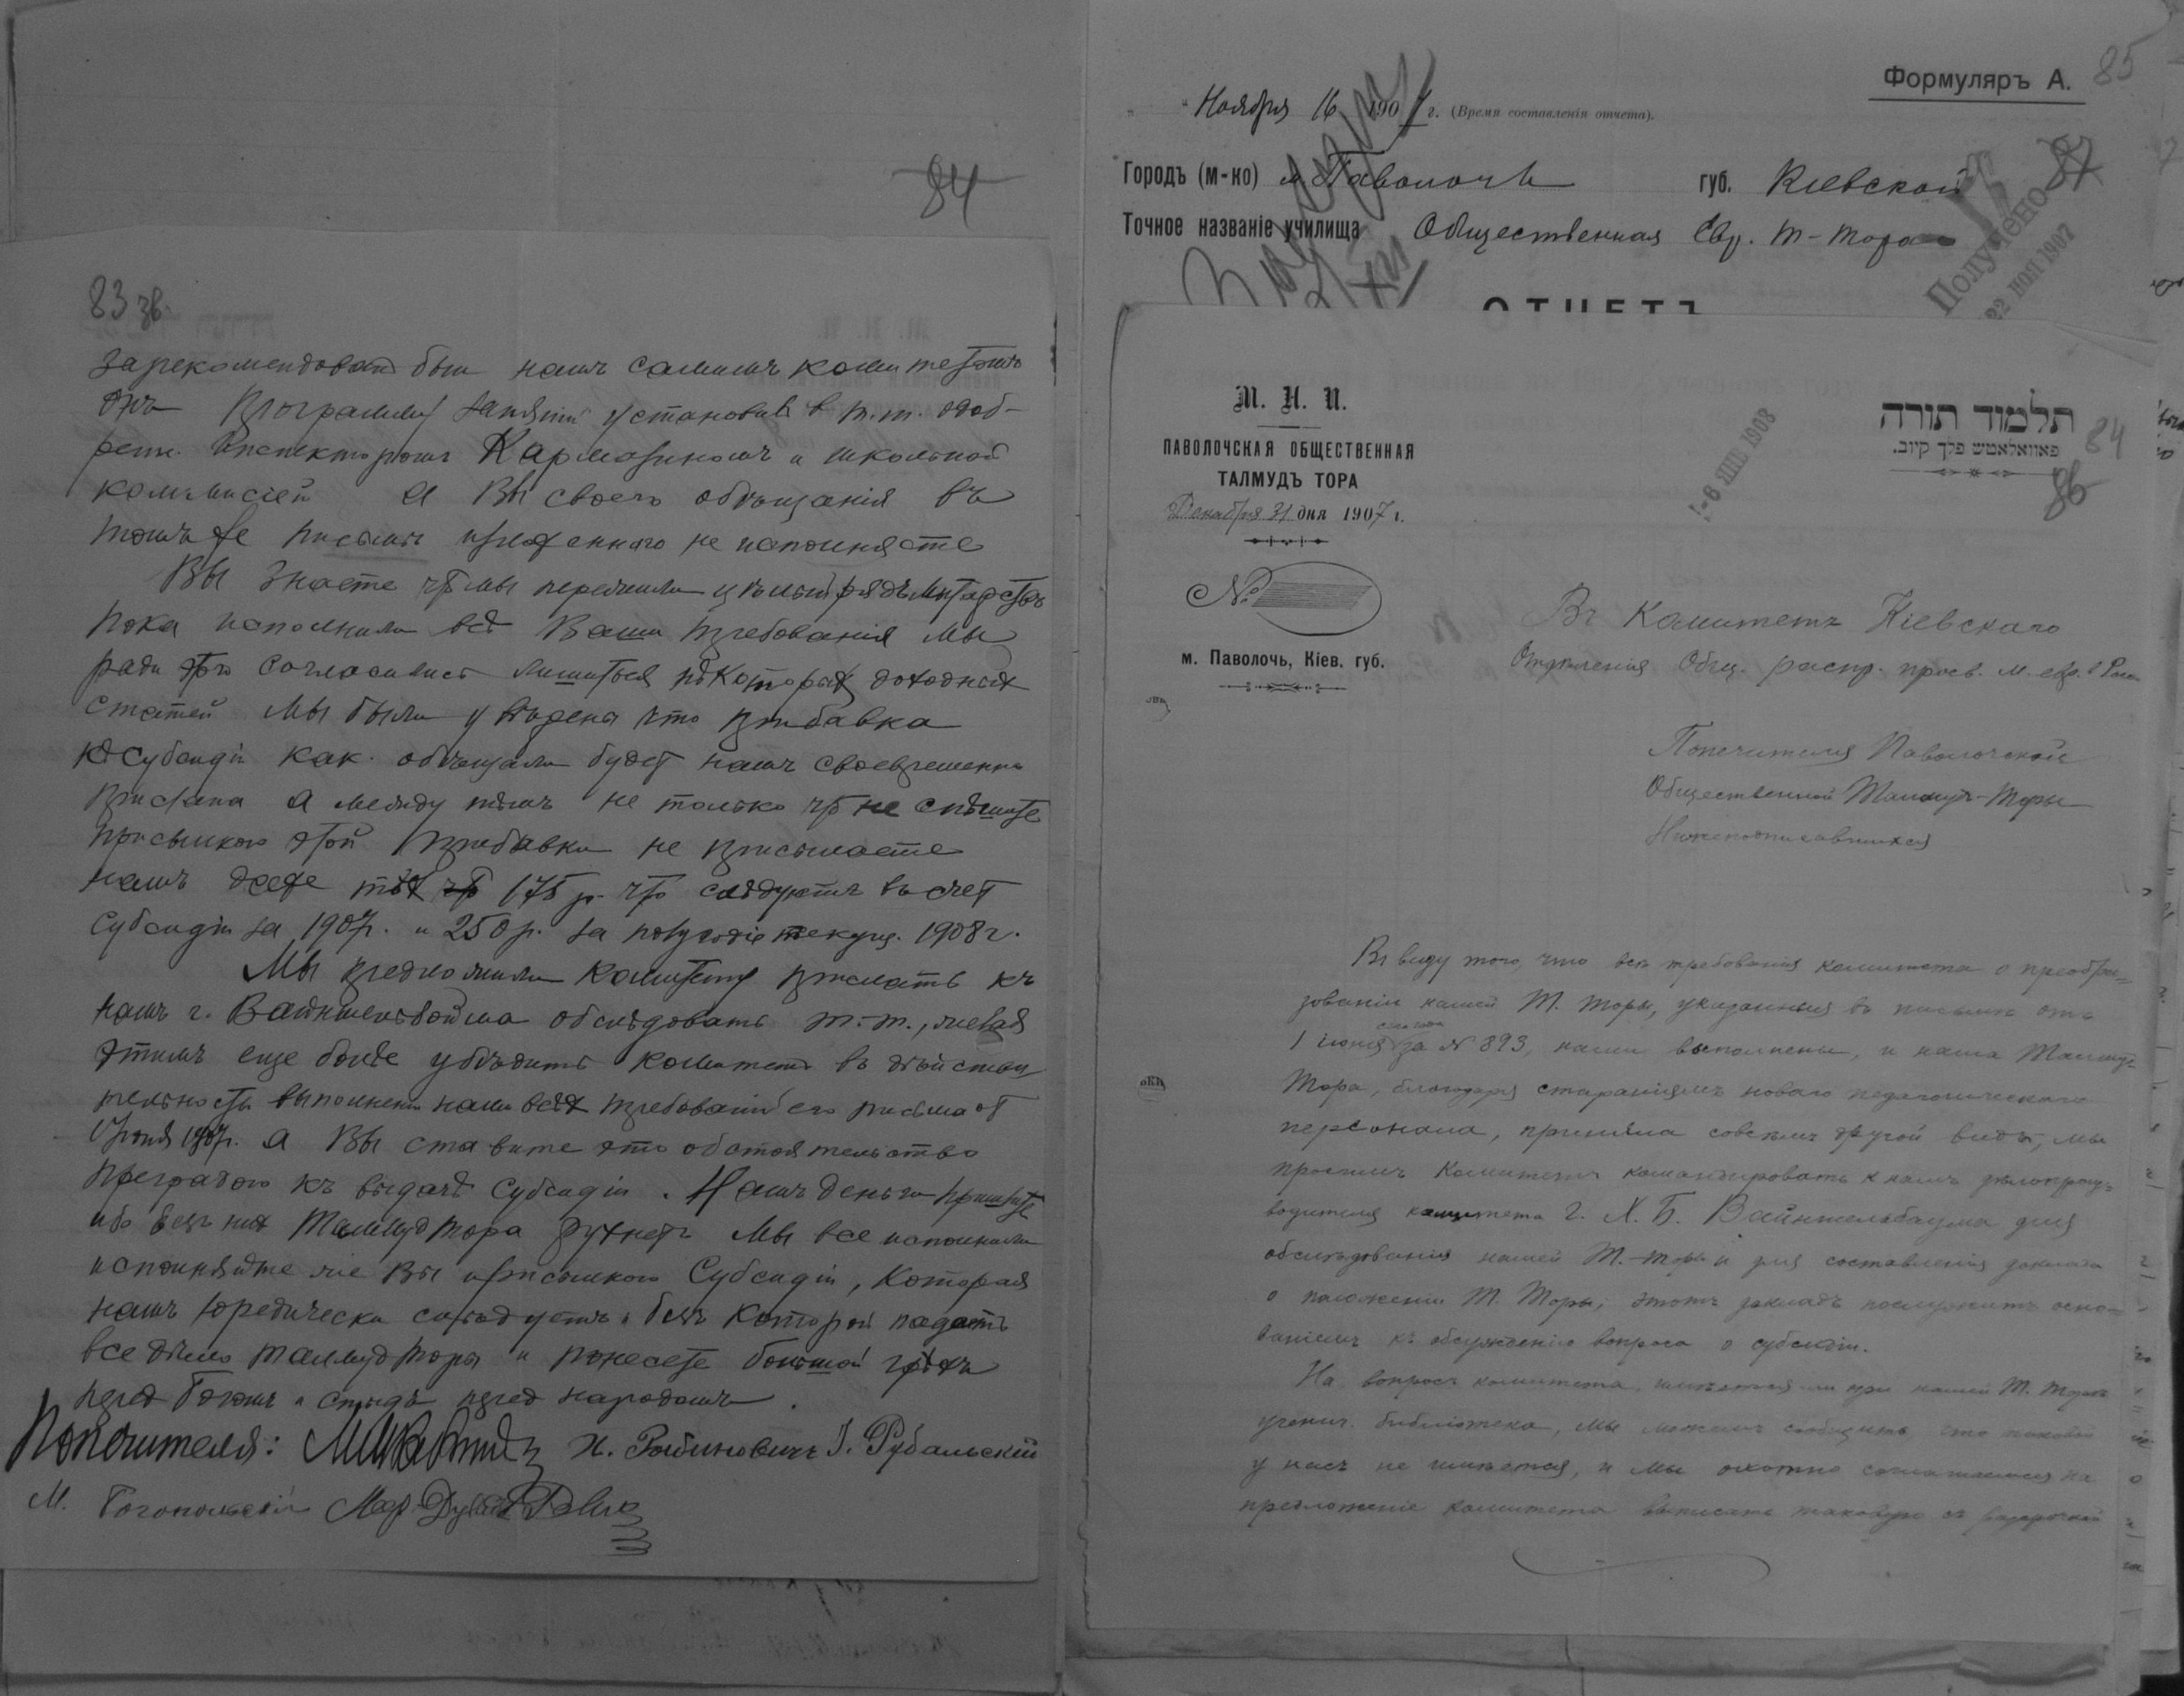 84
83 зв.
зарекомендован был намъ самимъ комитетомъ
онъ Программу занятій установил в т.т. одоб-
рен. Инспекторомъ Кармазиномъ и школьной
коммисіей а Вы своего обѣщанія въ
томъ же письмѣ изложеннаго не исполняете
Вы знаете что мы пережили цѣлый рядъ мытарствъ
пока исполнили всѣ Ваши требованія мы
ради этого согласились лишиться нѣкоторых доходных
статей мы были увѣрены что прибавка
к субсидіи как обѣщали будет намъ своевременно
прислана а между тѣмъ не только что не спѣшите
присылкою этой прибавки не присылаете
намъ даже тѣх 175 р. что слѣдуетъ въ счет
субсидіи за 1907г. и 250 р. за полугодіе текущ. 1908 г.
Мы предложили Комитету прислать къ
намъ г. Вайнштельбойма обслѣдовать т.-т., желая
этимъ еще болѣе убѣдить комитетъ въ дѣйстви-
тельности выполненія нами всѣх требованій его письма от
1 Іюня 1907г. а Вы ставите это обстоятельство
преградою къ выдачѣ субсидіи. Намъ деньги пришлите
ибо безъ них Талмуд тора рухнетъ Мы все исполнили
исполняйте же Вы присылкою Субсидіи, которая
намъ юредически слѣдуетъ и безъ которой падетъ
все дѣло талмуд торы и понесете большой грѣхъ
перед Богомъ и стыдъ перед народомъ.
Попечителя: Х. Рабиновичъ І. Рубальскій
М. Погопольскій
Формуляръ А. 85
Ноября 16 1907 г. (Время составленія отчета).
Городъ (м-ко) м. Паволочь губ. Кіевской 87
Точное названіе училища Общественная Евр. Т-Тора
Получено
22 НОЯ 1907
ОТЧЕТЪ
М. Н. П.
ПАВОЛОЧСКАЯ ОБЩЕСТВЕННАЯ
ТАЛМУДЪ ТОРА
Декабря 31 дня 1907 г.
№
м. Паволочь, Кіев. губ.
תלמוד תורה
פאוואלאטש פלך קיוב.
84
86
1908
Въ Комитетъ Кіевскаго
Отдѣленія Общ. распр. просв. м. евр. в Рос.
Попечителя Паволочской
Общественной Талмудъ-Торы
Нижеподписавшихся
Въ виду того, что всѣ требованія комитета о преобра-
зованіи нашей Т. Торы, указанныя въ письмѣ отъ
1 іюня сего года за № 893, нами выполнены, и наша Талмудъ
Тора, благодаря стараніямъ новаго педагогическаго
персонала, приняла совсѣмъ другой видъ, мы
просимъ Комитетъ командировать к намъ дѣлопроиз-
водителя комитета г. Х. Б. Вайнштельбаума для
обслѣдованія нашей Т.-Торы и для составленія доклада
о положеніи Т. Торы; этотъ докладъ послужитъ осно-
ваніемъ къ обсужденію вопроса о субсидіи.
На вопросъ комитета, имѣется ли при нашей Т. Торѣ
ученич. библіотека, мы можемъ сообщить что таковой
у насъ не имѣется, и мы охотно соглашаемся на
предложеніе комитета выписать таковую съ разсрочкой